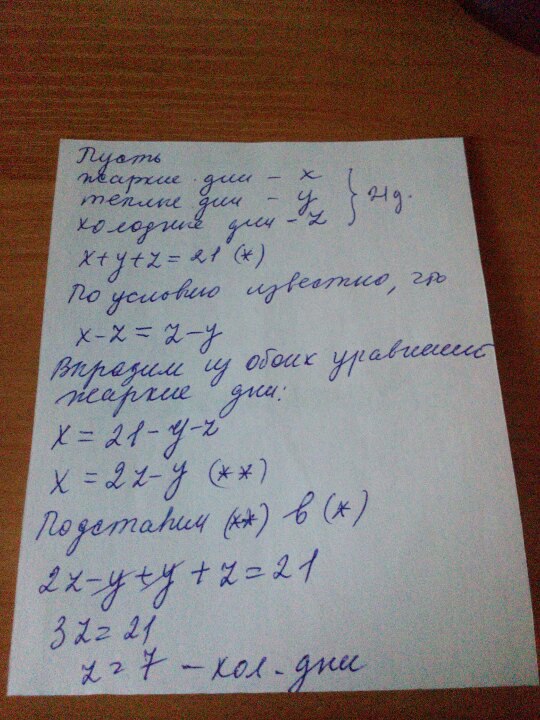 Пусть
жаркие дни – x
теплые дни – y } 21 д.
холодные дни – z
x+y+z = 21 (*)
По условию известно, что
x-z = z-y
Выразим из обоих уравнений
жаркие дни:
x = 21-y-z
x = 2z-y (**)
Подставим (**) в (*)
2z-y+y+z=21
3z=21
z=7 – хол. дни